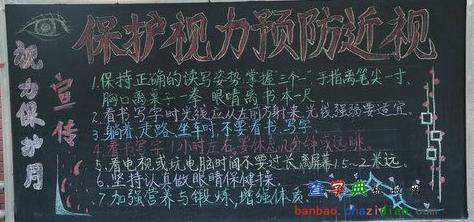 保护视力预防近视
视力保护月
宣传
1.保持正确的读写姿势,掌握三个一,手指离笔尖一寸,
胸口离桌子一拳,眼睛离书本一尺
2.看书写字时光线应从左前方射来,光线强弱要适宜,
3.躺着,走路,坐车时不要看书,写字
4.看书写字1小时左右,要休息几分钟或远眺,
5.看电视或玩电脑时间不要过长,离屏幕1.5--2米远
6.坚持认真做眼睛保健操
7.加强营养与锻炼,增强体质.
查字典
banbao.chazidian.com